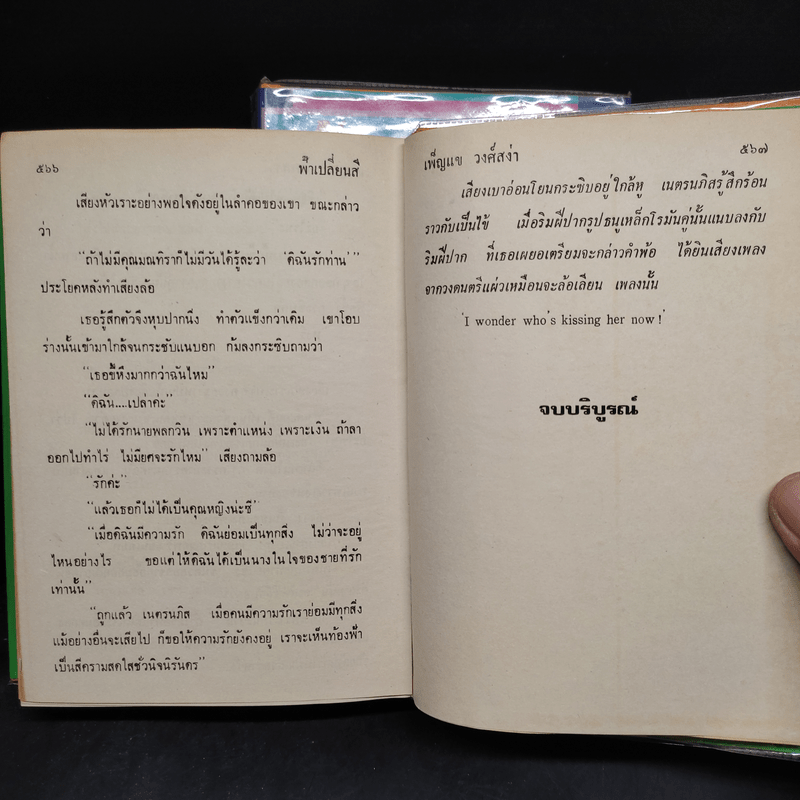 ๕๖๖
ฟ้าเปลี่ยนสี
เสียงหัวเราะอย่างพอใจดังอยู่ในลำคอของเขา ขณะกล่าว
ว่า
“ถ้าไม่มีคุณมณทิราก็ไม่มีวันได้รู้ละว่า ‘ดิฉันรักท่าน’ ”
ประโยคหลังทำเสียงล้อ
เธอรู้สึกตัวจึงหุบปากนิ่ง ทำตัวแข็งกว่าเดิม เขาโอบ
ร่างนั้นเข้ามาใกล้จนกระชับแนบอก ก้มลงกระซิบถามว่า
“เธอขี้หึงมากกว่าฉันไหม”
“ดิฉัน....เปล่าค่ะ”
“ไม่ได้รักนายพลกวิน เพราะตำแหน่ง เพราะเงิน ถ้าลา
ออกไปทำไร่ ไม่มียศจะรักไหม” เสียงถามล้อ
“รักค่ะ”
“แล้วเธอก็ไม่ได้เป็นคุณหญิงน่ะซี”
“เมื่อดิฉันมีความรัก ดิฉันย่อมเป็นทุกสิ่ง ไม่ว่าจะอยู่
ไหนอย่างไร ขอแต่ให้ดิฉันได้เป็นนางในใจของชายที่รัก
เท่านั้น”
“ถูกแล้ว เนตรนภิส เมื่อคนมีความรักเราย่อมมีทุกสิ่ง
แม้อย่างอื่นจะเสียไป ก็ขอให้ความรักยังคงอยู่ เราจะเห็นท้องฟ้า
เป็นสีครามสดใสชั่วนิจนิรันดร”
เพ็ญแข วงศ์สง่า
๕๖๗
เสียงเบาอ่อนโยนกระซิบอยู่ใกล้หู เนตรนภิสรู้สึกร้อน
ราวกับเป็นไข้ เมื่อริมฝีปากรูปธนูเหล็กโรมันคู่นั้นแนบลงกับ
ริมฝีปาก ที่เธอเผยอเตรียมจะกล่าวคำพ้อ ได้ยินเสียงเพลง
จากวงดนตรีแผ่วเหมือนจะล้อเลียน เพลงนั้น
‘I wonder who's kissing her now!’
จบบริบูรณ์